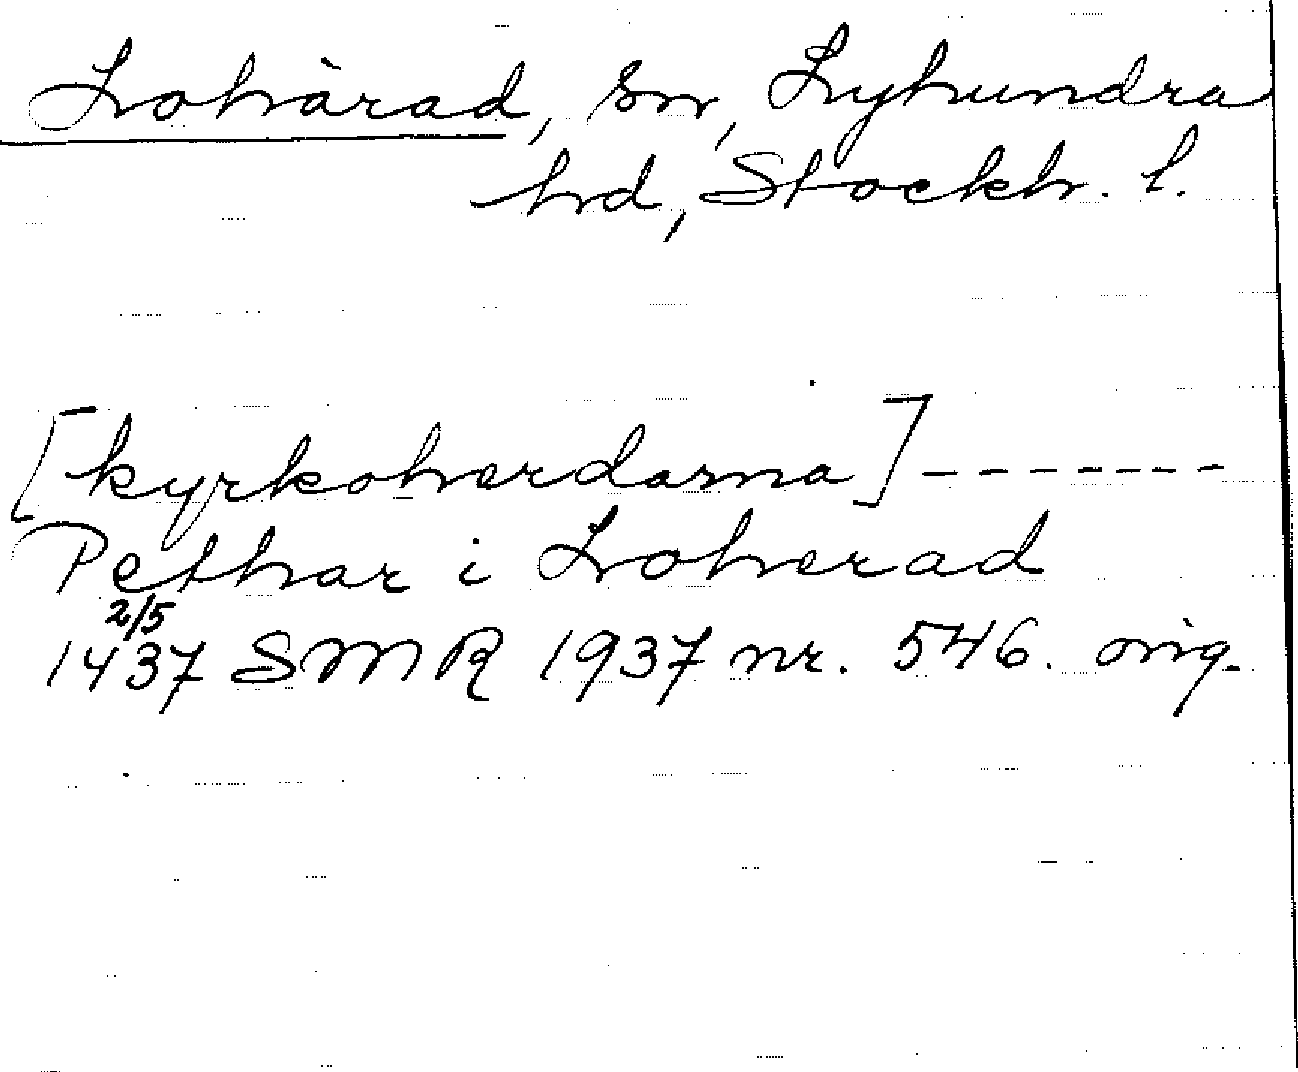 Lohärad, sn, Lyhundra
hd, Stockh. l.
[kyrkoherdarna] -------
Pethar i Loherad
2/5
1437 SMR 1937 nr. 546. orig.